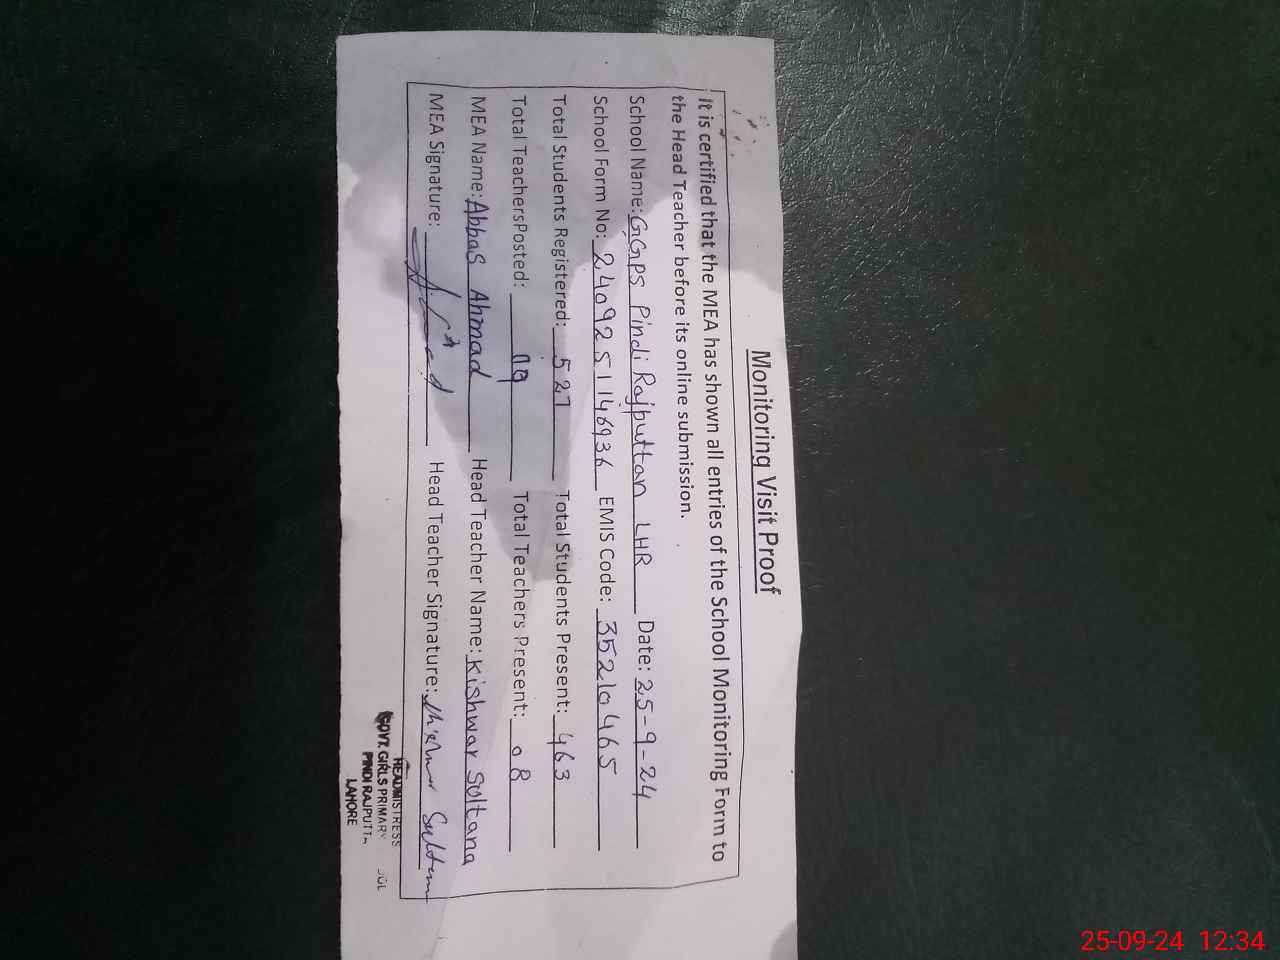 Monitoring Visit Proof
It is certified that the MEA has shown all entries of the School Monitoring Form to
the Head Teacher before its online submission.
School Name: GGPS Pindi Rajputtan LHR Date: 25-9-24
School Form No: 2409251146936 EMIS Code: 35210465
Total Students Registered: 527 Total Students Present: 463
Total TeachersPosted: 09 Total Teachers Present: 08
MEA Name: Abbas Ahmad Head Teacher Name: Kishwar Sultana
MEA Signature: Head Teacher Signature:
HEADMISTRESS
GOVT. GIRLS PRIMARY
PINDI RAJPUTT
LAHORE
25-09-24 12:34